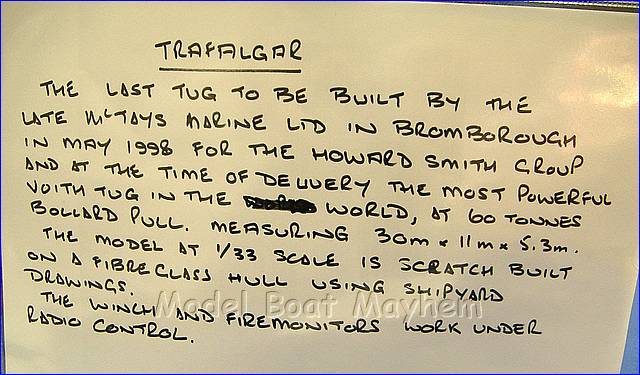 TRAFALGAR
THE LAST TUG TO BE BUILT BY THE
LATE McTAYS MARINE LTD IN BROMBOROUGH
IN MAY 1998 FOR THE HOWARD SMITH GROUP
AND AT THE TIME OF DELIVERY THE MOST POWERFUL
VOITH TUG IN THE WORLD, AT 60 TONNES
BOLLARD PULL. MEASURING 30m x 11m x 5.3m.
THE MODEL AT 1/33 SCALE IS SCRATCH BUILT
ON A FIBREGLASS HULL USING SHIPYARD
DRAWINGS.
Model Boat Mayhem
THE WINCH AND FIREMONITORS WORK UNDER
RADIO CONTROL.